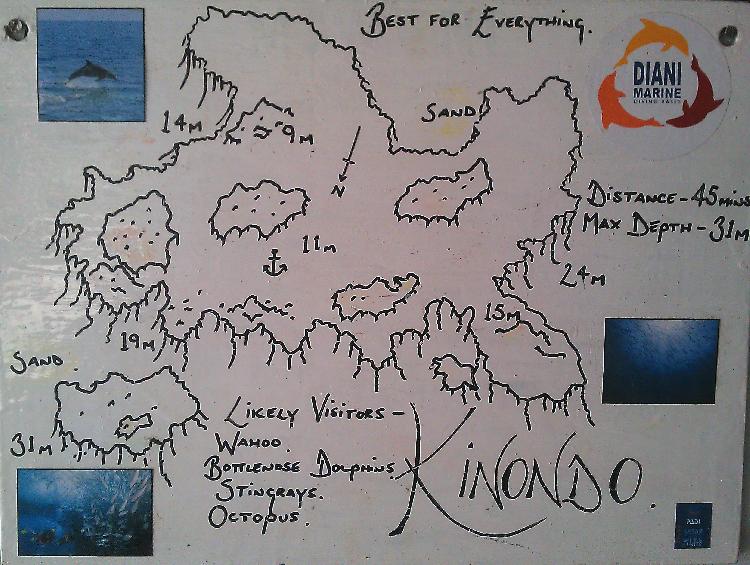 Best for Everything.
DIANI
MARINE
Sand
14m
9m
N
Distance - 45mins
Max Depth - 31m
11m
24m
15m
19m
Sand.
31m
Likely Visitors -
Wahoo.
Bottlenose Dolphins.
Stingrays.
Octopus.
Kinondo.
PADI